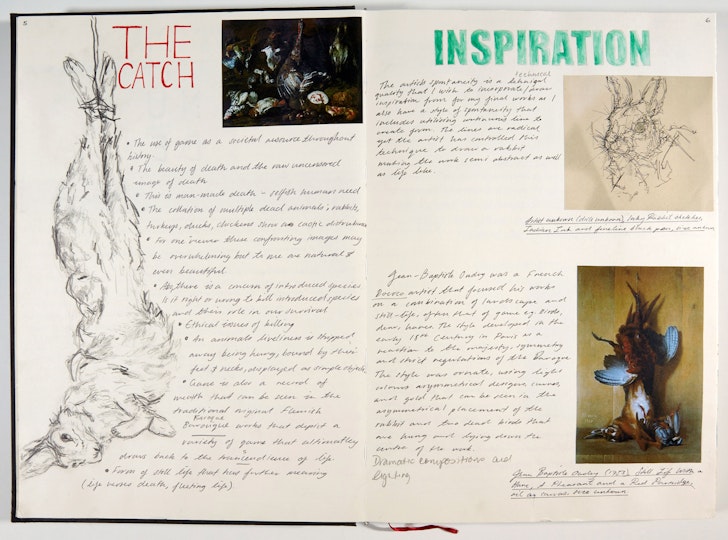 5
THE
CATCH
• The use of game as a societal resource throughout
history.
• The beauty of death and the raw uncensored
image of death
• This is man-made death - selfish humans need
• The collation of multiple dead animals, rabbits,
turkeys, ducks, chickens show a caotic distribution
• For one viewer these confronting images may
be overwhelming but to me are natural &
even beautiful
• As there is a concern of introduced species
is it right or wrong to kill introduced species
and their role in our survival
• Ethical issues of killing
• An animals liveliness is stripped
away being hung, bound by their
feet & necks, displayed as simple objects
• Game is also a record of
wealth that can be seen in the
traditional original Flemish
Baroque
works that depict a
variety of game that ultimatley
draws back to the transcendience of life.
• Form of still life that has further meaning
(life verses death, fleeting life).
6
INSPIRATION
technical
The artists spontaneity is a
quality that I wish to incorporate/draw
inspiration from for my final works as I
also have a style of spontaneity that
includes utilising continuous line to
create form. The lines are radical
yet the artist has controlled this
technique to draw a rabbit
making the work semi abstract as well
as life like.
Artist unknown (date unknown) Inky Rabbit sketches
Indian Ink and fineline black pen, size unknown
Jean-Baptiste Oudry was a French
Rococo artist that focused his works
on a combination of landscape and
still-life, often that of game eg. birds,
deer, hares. The style developed in the
early 18th Century in Paris as a
reaction to the majesty, symmetry
and strict regulations of the Baroque
The style was ornate, using light
colours asymmetrical designs, curves,
and gold that can be seen in the
asymmetrical placement of the
rabbit and two dead birds that
are hung and lying down the
centre of the work.
Dramatic compositions and
lighting
Jean Baptiste Oudry (1753) Still Life with a
Hare, A Pheasant and a Red Partridge,
oil on canvas, size unknown